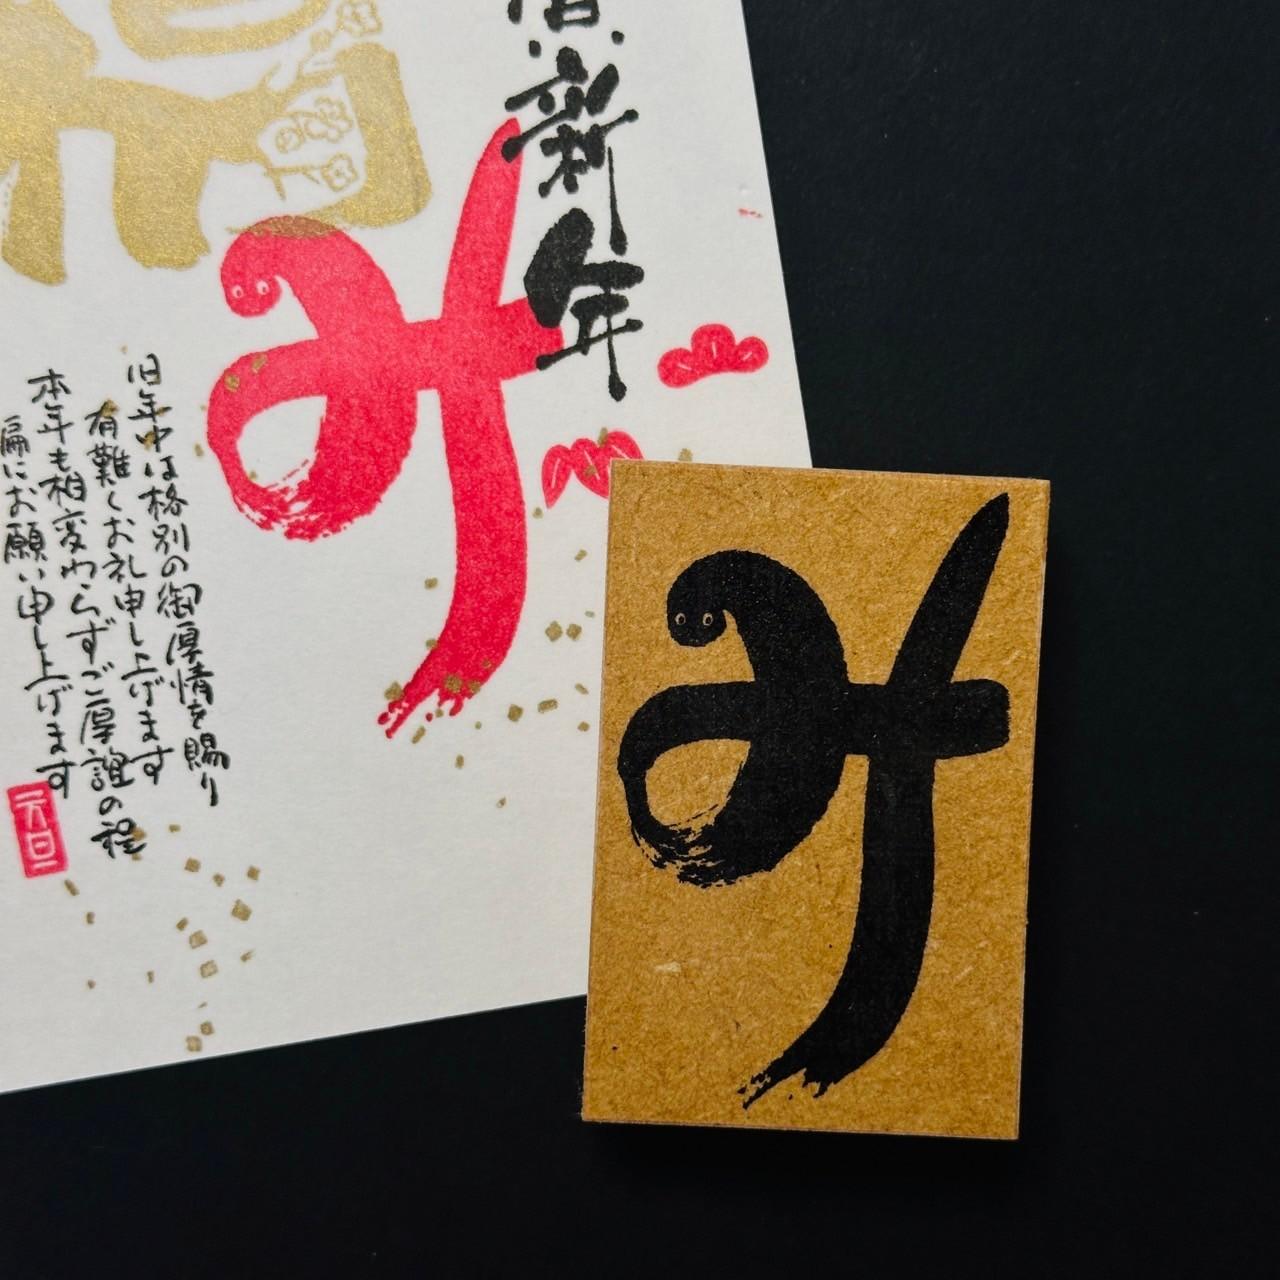 新年
み
旧年中は格別の御厚情を賜り
有難くお礼申し上げます
本年も相変わらずご厚誼の程
偏にお願い申し上げます
元旦
み